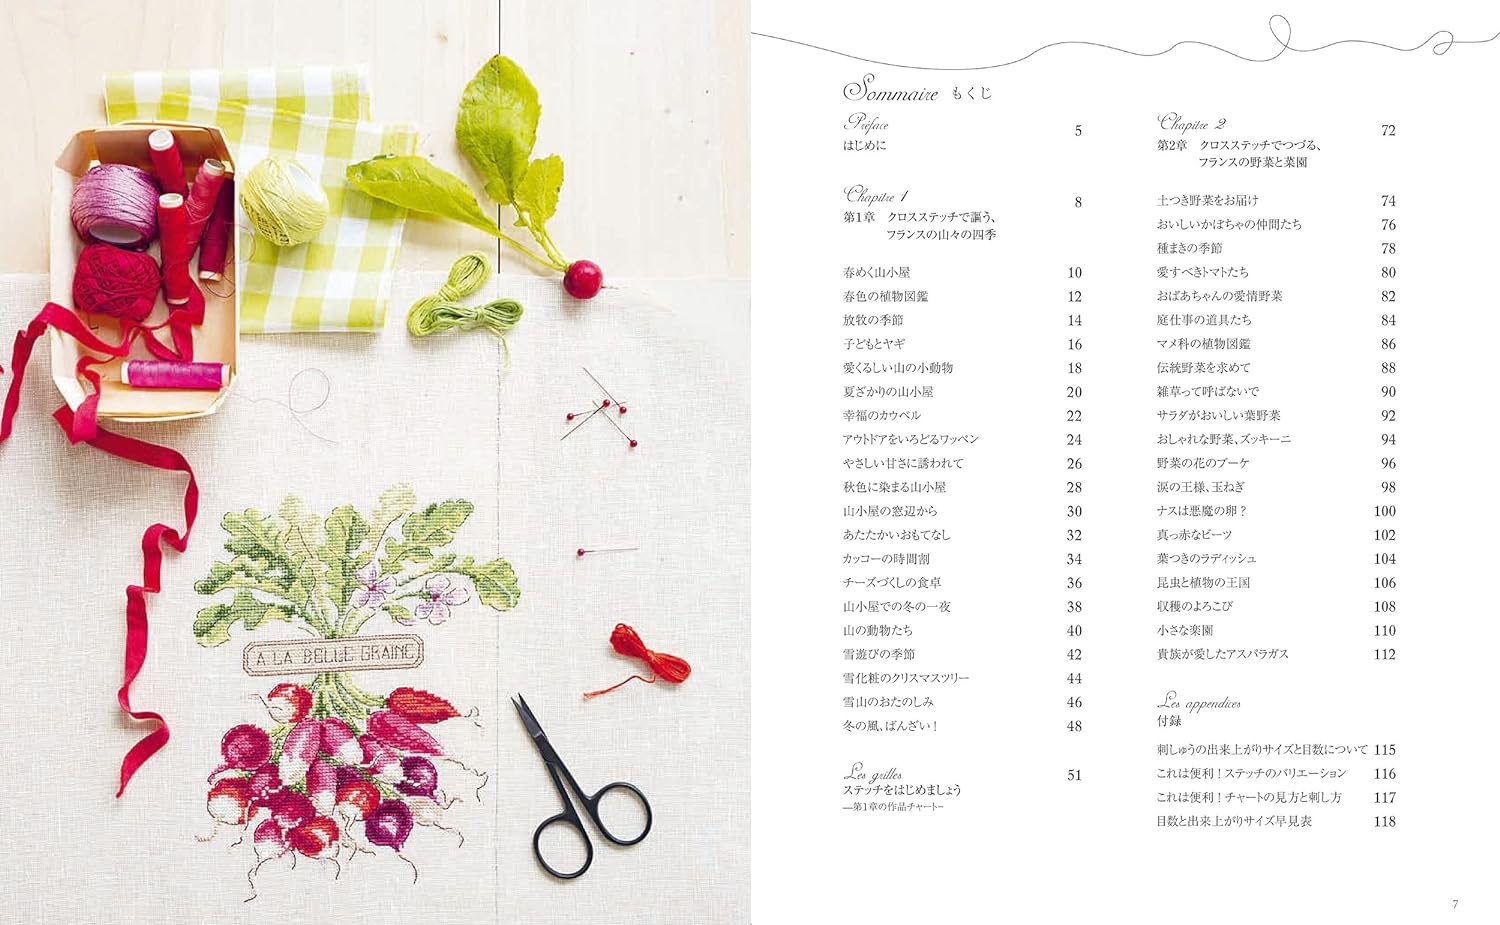 A LA BELLE GRAINE
Sommaire もくじ
Préface 5
はじめに
Chapitre 1 8
第1章 クロスステッチで謳う、
フランスの山々の四季
春めく山小屋 10
春色の植物図鑑 12
放牧の季節 14
子どもとヤギ 16
愛くるしい山の小動物 18
夏ざかりの山小屋 20
幸福のカウベル 22
アウトドアをいろどるワッペン 24
やさしい甘さに誘われて 26
秋色に染まる山小屋 28
山小屋の窓辺から 30
あたたかいおもてなし 32
カッコーの時間割 34
チーズづくしの食卓 36
山小屋での冬の一夜 38
山の動物たち 40
雪遊びの季節 42
雪化粧のクリスマスツリー 44
雪山のおたのしみ 46
冬の風、ばんざい! 48
Les grilles 51
ステッチをはじめましょう
―第1章の作品チャート−
Chapitre 2 72
第2章 クロスステッチでつづる、
フランスの野菜と菜園
土つき野菜をお届け 74
おいしいかぼちゃの仲間たち 76
種まきの季節 78
愛すべきトマトたち 80
おばあちゃんの愛情野菜 82
庭仕事の道具たち 84
マメ科の植物図鑑 86
伝統野菜を求めて 88
雑草って呼ばないで 90
サラダがおいしい葉野菜 92
おしゃれな野菜、ズッキーニ 94
野菜の花のブーケ 96
涙の王様、玉ねぎ 98
ナスは悪魔の卵? 100
真っ赤なビーツ 102
葉つきのラディッシュ 104
昆虫と植物の王国 106
収穫のよろこび 108
小さな楽園 110
貴族が愛したアスパラガス 112
Les appendices
付録
刺しゅうの出来上がりサイズと目数について 115
これは便利!ステッチのバリエーション 116
これは便利!チャートの見方と刺し方 117
目数と出来上がりサイズ早見表 118
7